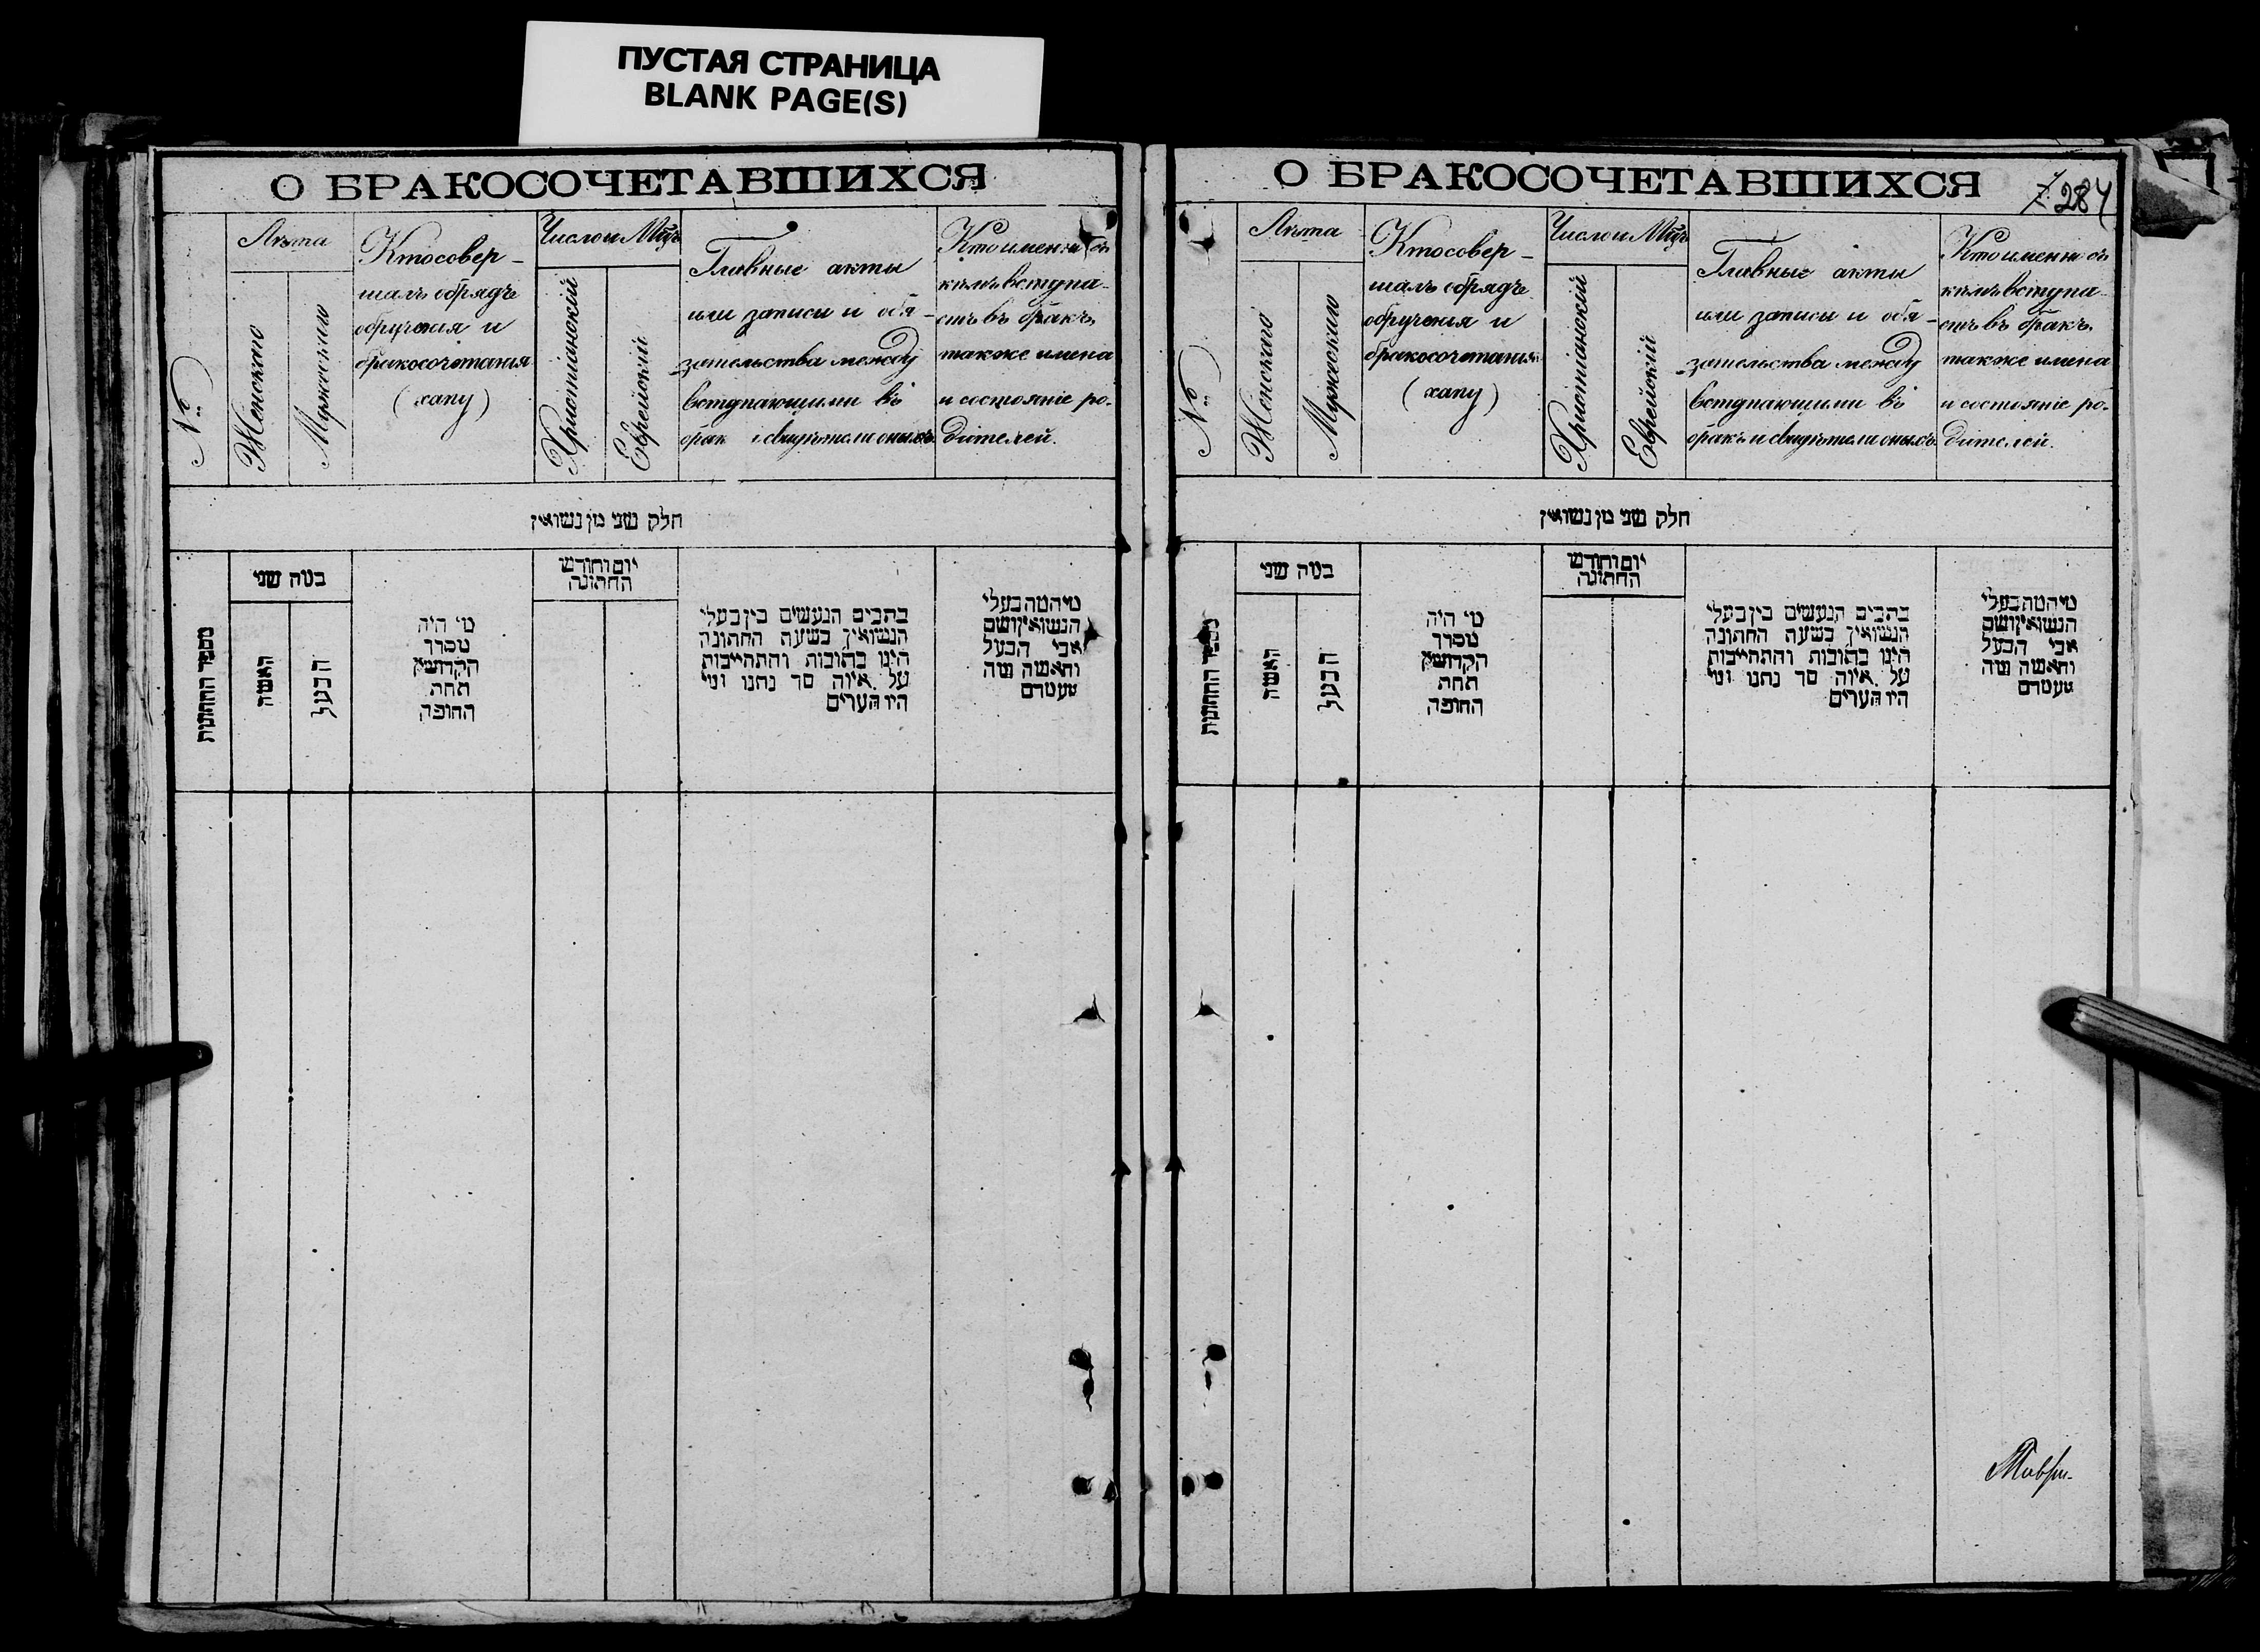 ПУСТАЯ СТРАНИЦА
BLANK PAGE(S)
О БРАКОСОЧЕТАВШИХСЯ
№
Лѣта
Женскаго
Мужескаго
Кто совер-
шалъ обрядъ
обрученія и
бракосочетанія
(хапу)
Число и Мѣц
Христіанскій
Еврейскій
Главные акты
или записи и обя-
зательства между
вступающими въ
брак и свидѣтели оныхъ
Кто именно съ
кѣмъ вступа-
етъ въ бракъ,
также имена
и состояніе ро-
дителей.
חלק שני מן נשואין
מספר החתונות
במה שני
האשה
הבעל
מי היה
מסדר
הקדושין
תחת
החופה
יום וחודש
החתונה
כתבים הנעשים בין בעלי
הנשואין בשעת החתונה
היינו כתובות והתחייבות
על איזה סך נתנו ומי
היו העדים
מיהמה בעלי
הנשואין ושם
אבי הבעל
והאשה ומה
מעמדם
О БРАКОСОЧЕТАВШИХСЯ
284
№
Лѣта
Женскаго
Мужескаго
Кто совер-
шалъ обрядъ
обрученія и
бракосочетанія
(хапу)
Число и Мѣц
Христіанскій
Еврейскій
Главные акты
или записи и обя-
зательства между
вступающими въ
бракъ и свидѣтели оныхъ
Кто именно съ
кѣмъ вступа-
етъ въ бракъ,
также имена
и состояніе ро-
дителей.
חלק שני מן נשואין
מספר החתונות
במה שני
האשה
הבעל
מי היה
מסדר
הקדושין
תחת
החופה
יום וחודש
החתונה
כתבים הנעשים בין בעלי
הנשואין בשעת החתונה
היינו כתובות והתחייבות
על איזה סך נתנו ומי
היו העדים
מיהמה בעלי
הנשואין ושם
אבי הבעל
והאשה ומה
מעמדם